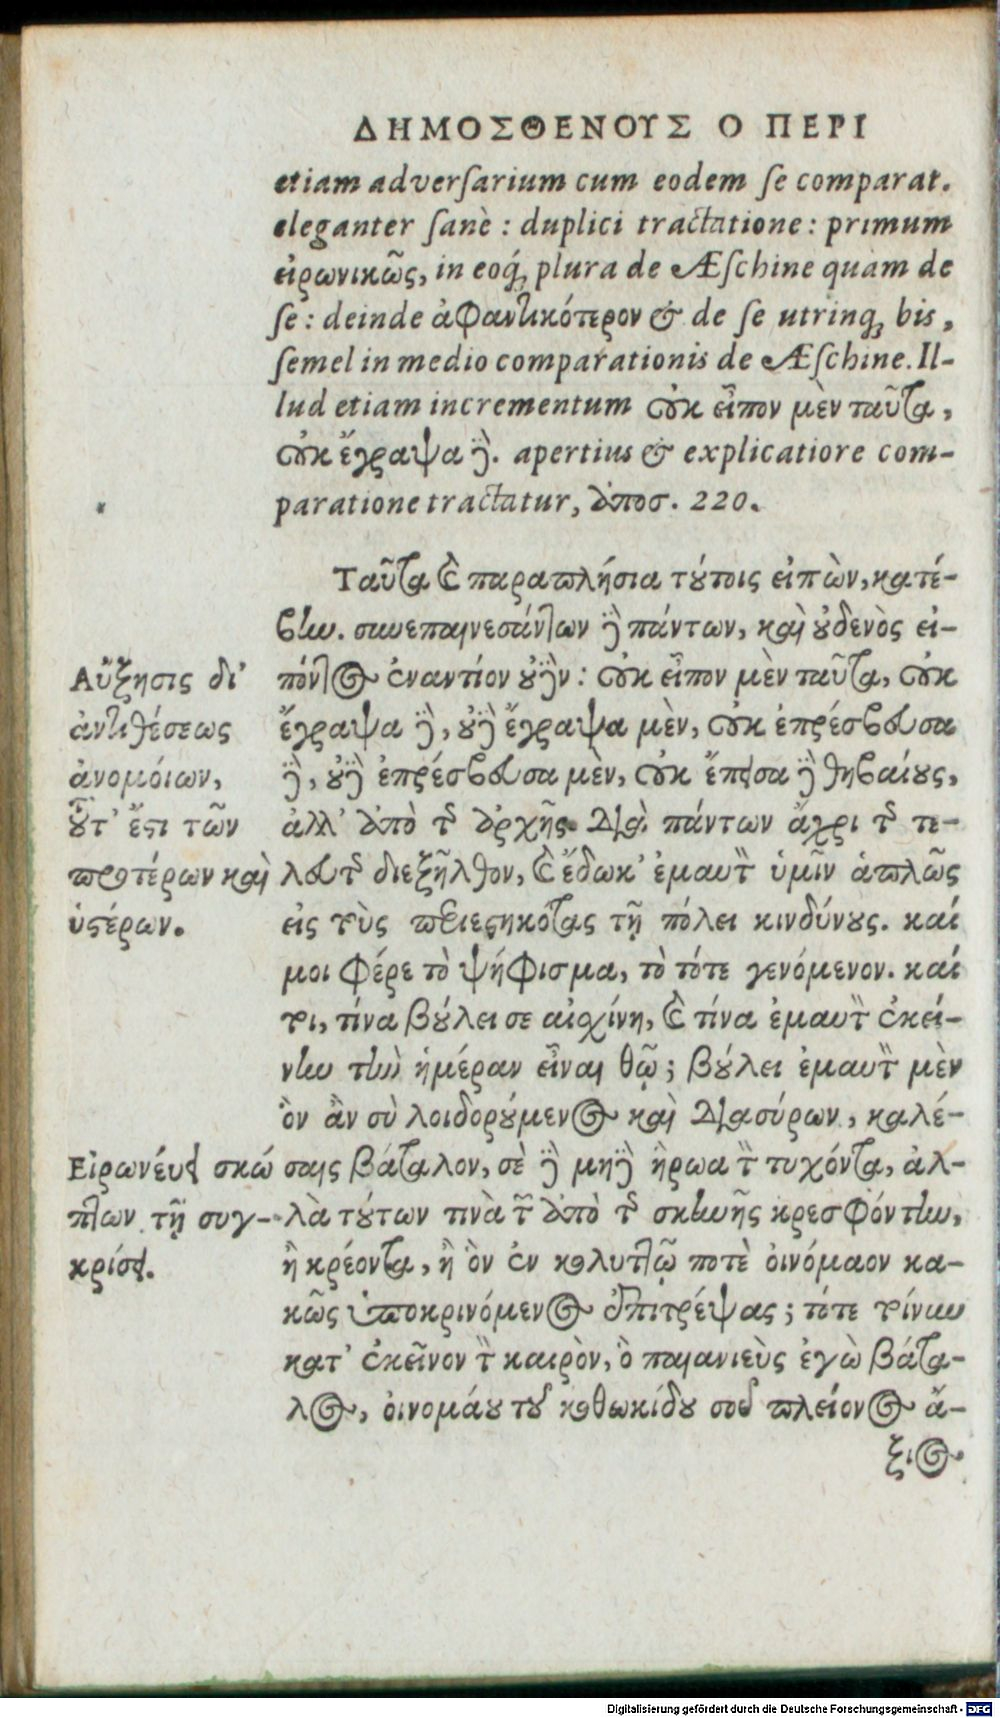 ΔΗΜΟΣΘΕΝΟΥΣ Ο ΠΕΡΙ
etiam adversarium cum eodem se comparat.
eleganter sanè : duplici tractatione : primum
εἰρωνικῶς, in eoq́; plura de Æschine quàm de
se : deinde ἀφαντικότερον & de se utrinq; bis,
semel in medio comparationis de Æschine. Il-
lud etiam incrementum οὐκ εἶπον μὲν ταῦτα,
οὐκ ἔγραψα δὲ. apertius & explicatiore com-
paratione tractatur, ἀποσ. 220.
Ταῦτα καὶ παραπλήσια τούτοις εἰπὼν, κατέ-
βην. συνεπαινεσάντων δὲ πάντων, καὶ οὐδενὸς εἰ-
πόντος ἐναντίον οὐδὲν : οὐκ εἶπον μὲν ταῦτα, οὐκ
ἔγραψα δὲ, οὐδὲ ἔγραψα μὲν, οὐκ ἐπρέσβευσα
δὲ, οὐδὲ ἐπρέσβευσα μὲν, οὐκ ἔπεισα δὲ θηβαίους,
ἀλλ' ἀπὸ τῆς ἀρχῆς διὰ πάντων ἄχρι τῆς τε-
λευτῆς διεξῆλθον, καὶ ἔδωκ' ἐμαυτὸν ὑμῖν ἁπλῶς
εἰς τοὺς περιεστηκότας τῇ πόλει κινδύνους. καί
μοι φέρε τὸ ψήφισμα, τὸ τότε γενόμενον. καί
τοι, τίνα βούλει σε αἰσχίνη, καὶ τίνα ἐμαυτὸν ἐκεί-
νην τὴν ἡμέραν εἶναι θῶ; βούλει ἐμαυτὸν μὲν
ὃν ἂν σὺ λοιδορούμενος καὶ διασύρων, καλέ-
σαις βάταλον, σὲ δὲ μηδὲ ἥρωα τὸν τυχόντα, ἀλ-
λὰ τούτων τινὰ τῶν ἀπὸ τῆς σκηνῆς κρεσφόντην,
ἢ κρέοντα, ἢ ὃν ἐν κολυττῷ ποτὲ οἰνόμαον κα-
κῶς ὑποκρινόμενος ἐπιτρέψας; τότε τοίνυν
κατ' ἐκεῖνον τὸν καιρὸν, ὁ παιανιεὺς ἐγὼ βάτα-
λος, οἰνομάου τοῦ κοθωκίδου σοῦ πλείονος ἄ-
ξιος
Αὔξησις δι'
ἀντιθέσεως
ἀνομοίων,
τοῦτ' ἔστι τῶν
προτέρων καὶ
ὑστέρων.
Εἰρωνεύει σκώ
πτων τῇ συγ-
κρίσει.
Digitalisierung gefördert durch die Deutsche Forschungsgemeinschaft - DFG